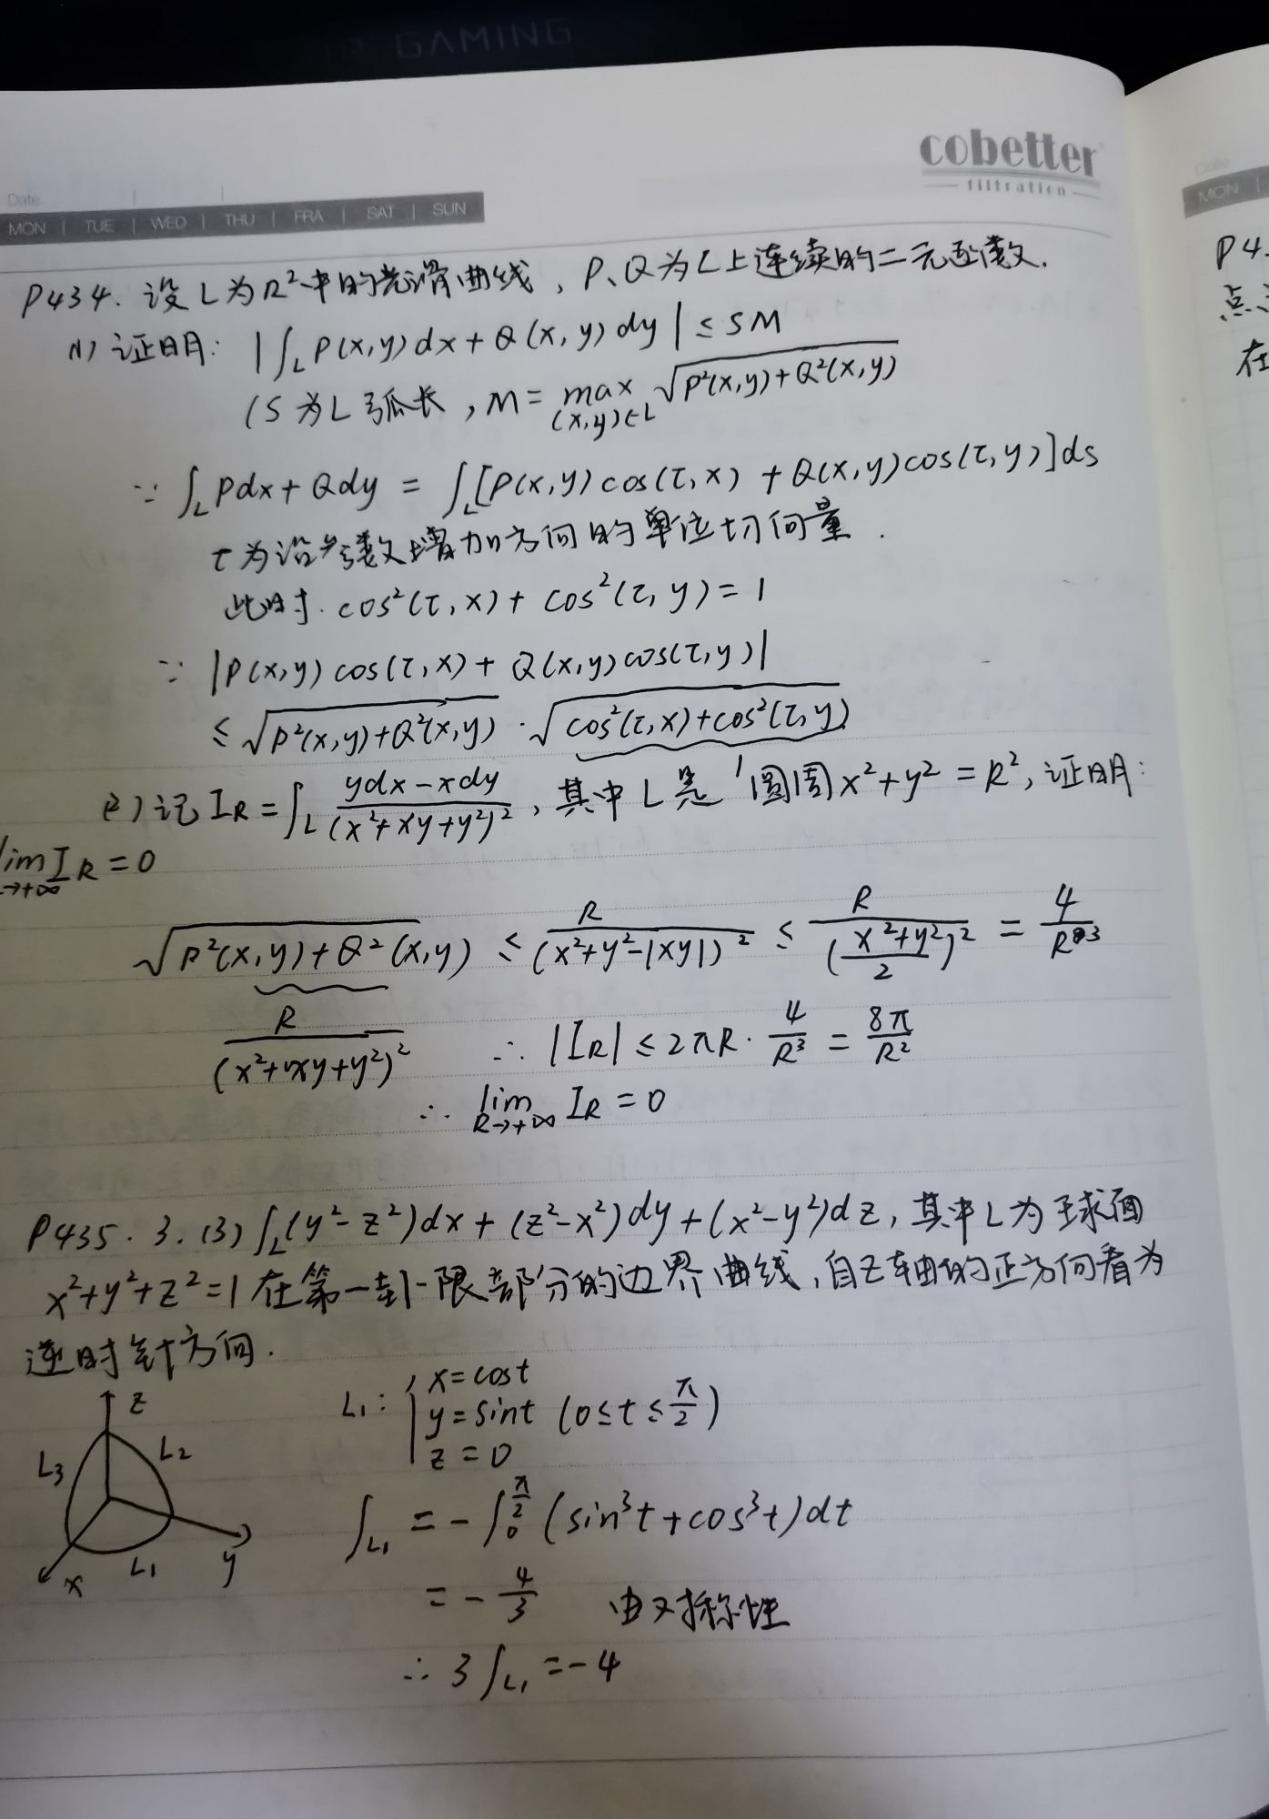 GAMING
cobetter
filtration
Date.
MON | TUE | WED | THU | FRA | SAT | SUN
Date
MON |
P434. 设L为R²中的光滑曲线，P、Q为L上连续的二元函数.
(1) 证明: |∫_L P(x,y)dx+Q(x,y)dy| ≤ SM
(S为L弧长，M= max_{(x,y)∈L} √(P²(x,y)+Q²(x,y))
∵ ∫_L Pdx+Qdy = ∫_L [P(x,y)cos(τ,x) + Q(x,y)cos(τ,y)]ds
τ为沿参数增加方向的单位切向量.
此时. cos²(τ,x)+ cos²(τ,y)=1
∵ |P(x,y)cos(τ,x)+ Q(x,y)cos(τ,y)|
≤ √(P²(x,y)+Q²(x,y)) · √(cos²(τ,x)+cos²(τ,y))
1
(2) 记 I_R = ∫_L (ydx-xdy)/(x²+xy+y²)², 其中L是圆周x²+y²=R², 证明:
lim I_R = 0
→+∞
√(P²(x,y)+Q²(x,y)) ≤ R/(x²+y²-|xy|)² ≤ R/((x²+y²)/2)² = 4/R³
R/(x²+xy+y²)² ∴ |I_R| ≤ 2πR · 4/R³ = 8π/R²
∴ lim_{R→+∞} I_R = 0
P435. 3. (3) ∫_L (y²-z²)dx+(z²-x²)dy+(x²-y²)dz, 其中L为球面
x²+y²+z²=1在第一卦限部分的边界曲线, 自z轴的正方向看为
逆时针方向.
L₁: { x=cost
y=sint (0≤t≤π/2)
z=0
z
L₃ L₂
x L₁ y
∫_{L₁} = -∫_0^{π/2} (sin³t+cos³t)dt
= -4/3 由对称性
∴ 3∫_{L₁} = -4
P4
点
在